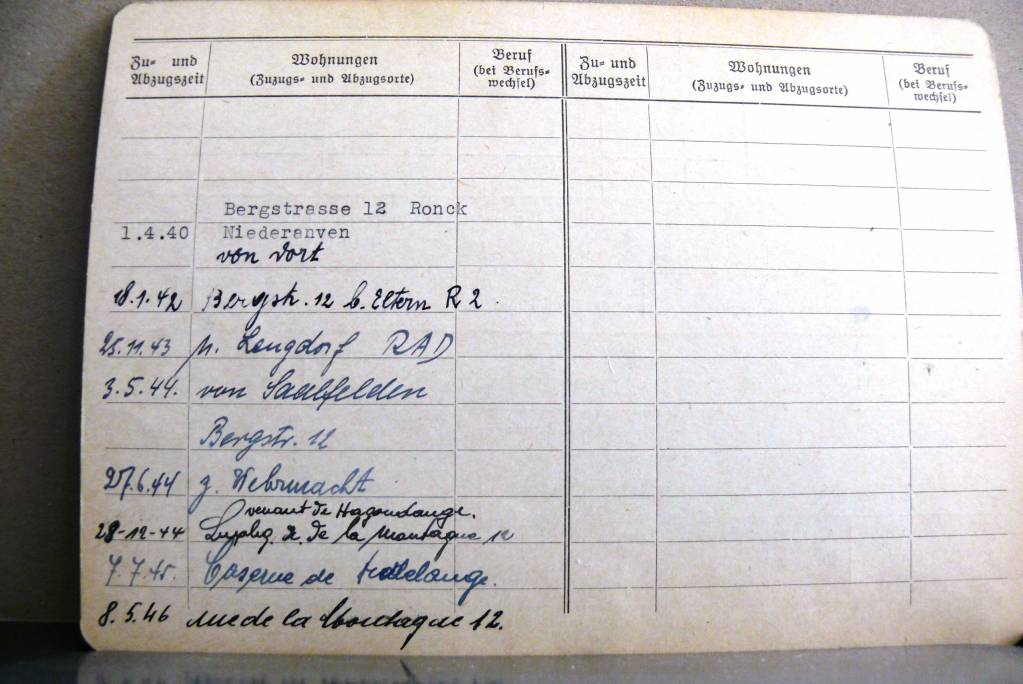 Zu- und Abzugszeit
Wohnungen
(Zuzugs- und Abzugsorte)
Beruf
(bei Berufs-
wechsel)
Zu- und Abzugszeit
Wohnungen
(Zuzugs- und Abzugsorte)
Beruf
(bei Berufs-
wechsel)
Bergstrasse 12 Ronck
1.4.40 Niederanven
von dort
18.1.42 Bergstr. 12 b. Eltern R 2.
25.11.43 n. Lengdorf RAD
3.5.44. von Saalfelden
Bergstr. 12
27.6.44 z. Wehrmacht
venant de Hagondange.
28-12-44 de la Montagne 12
7.7.45. Caserne de
8.5.46 rue de la Montagne 12.